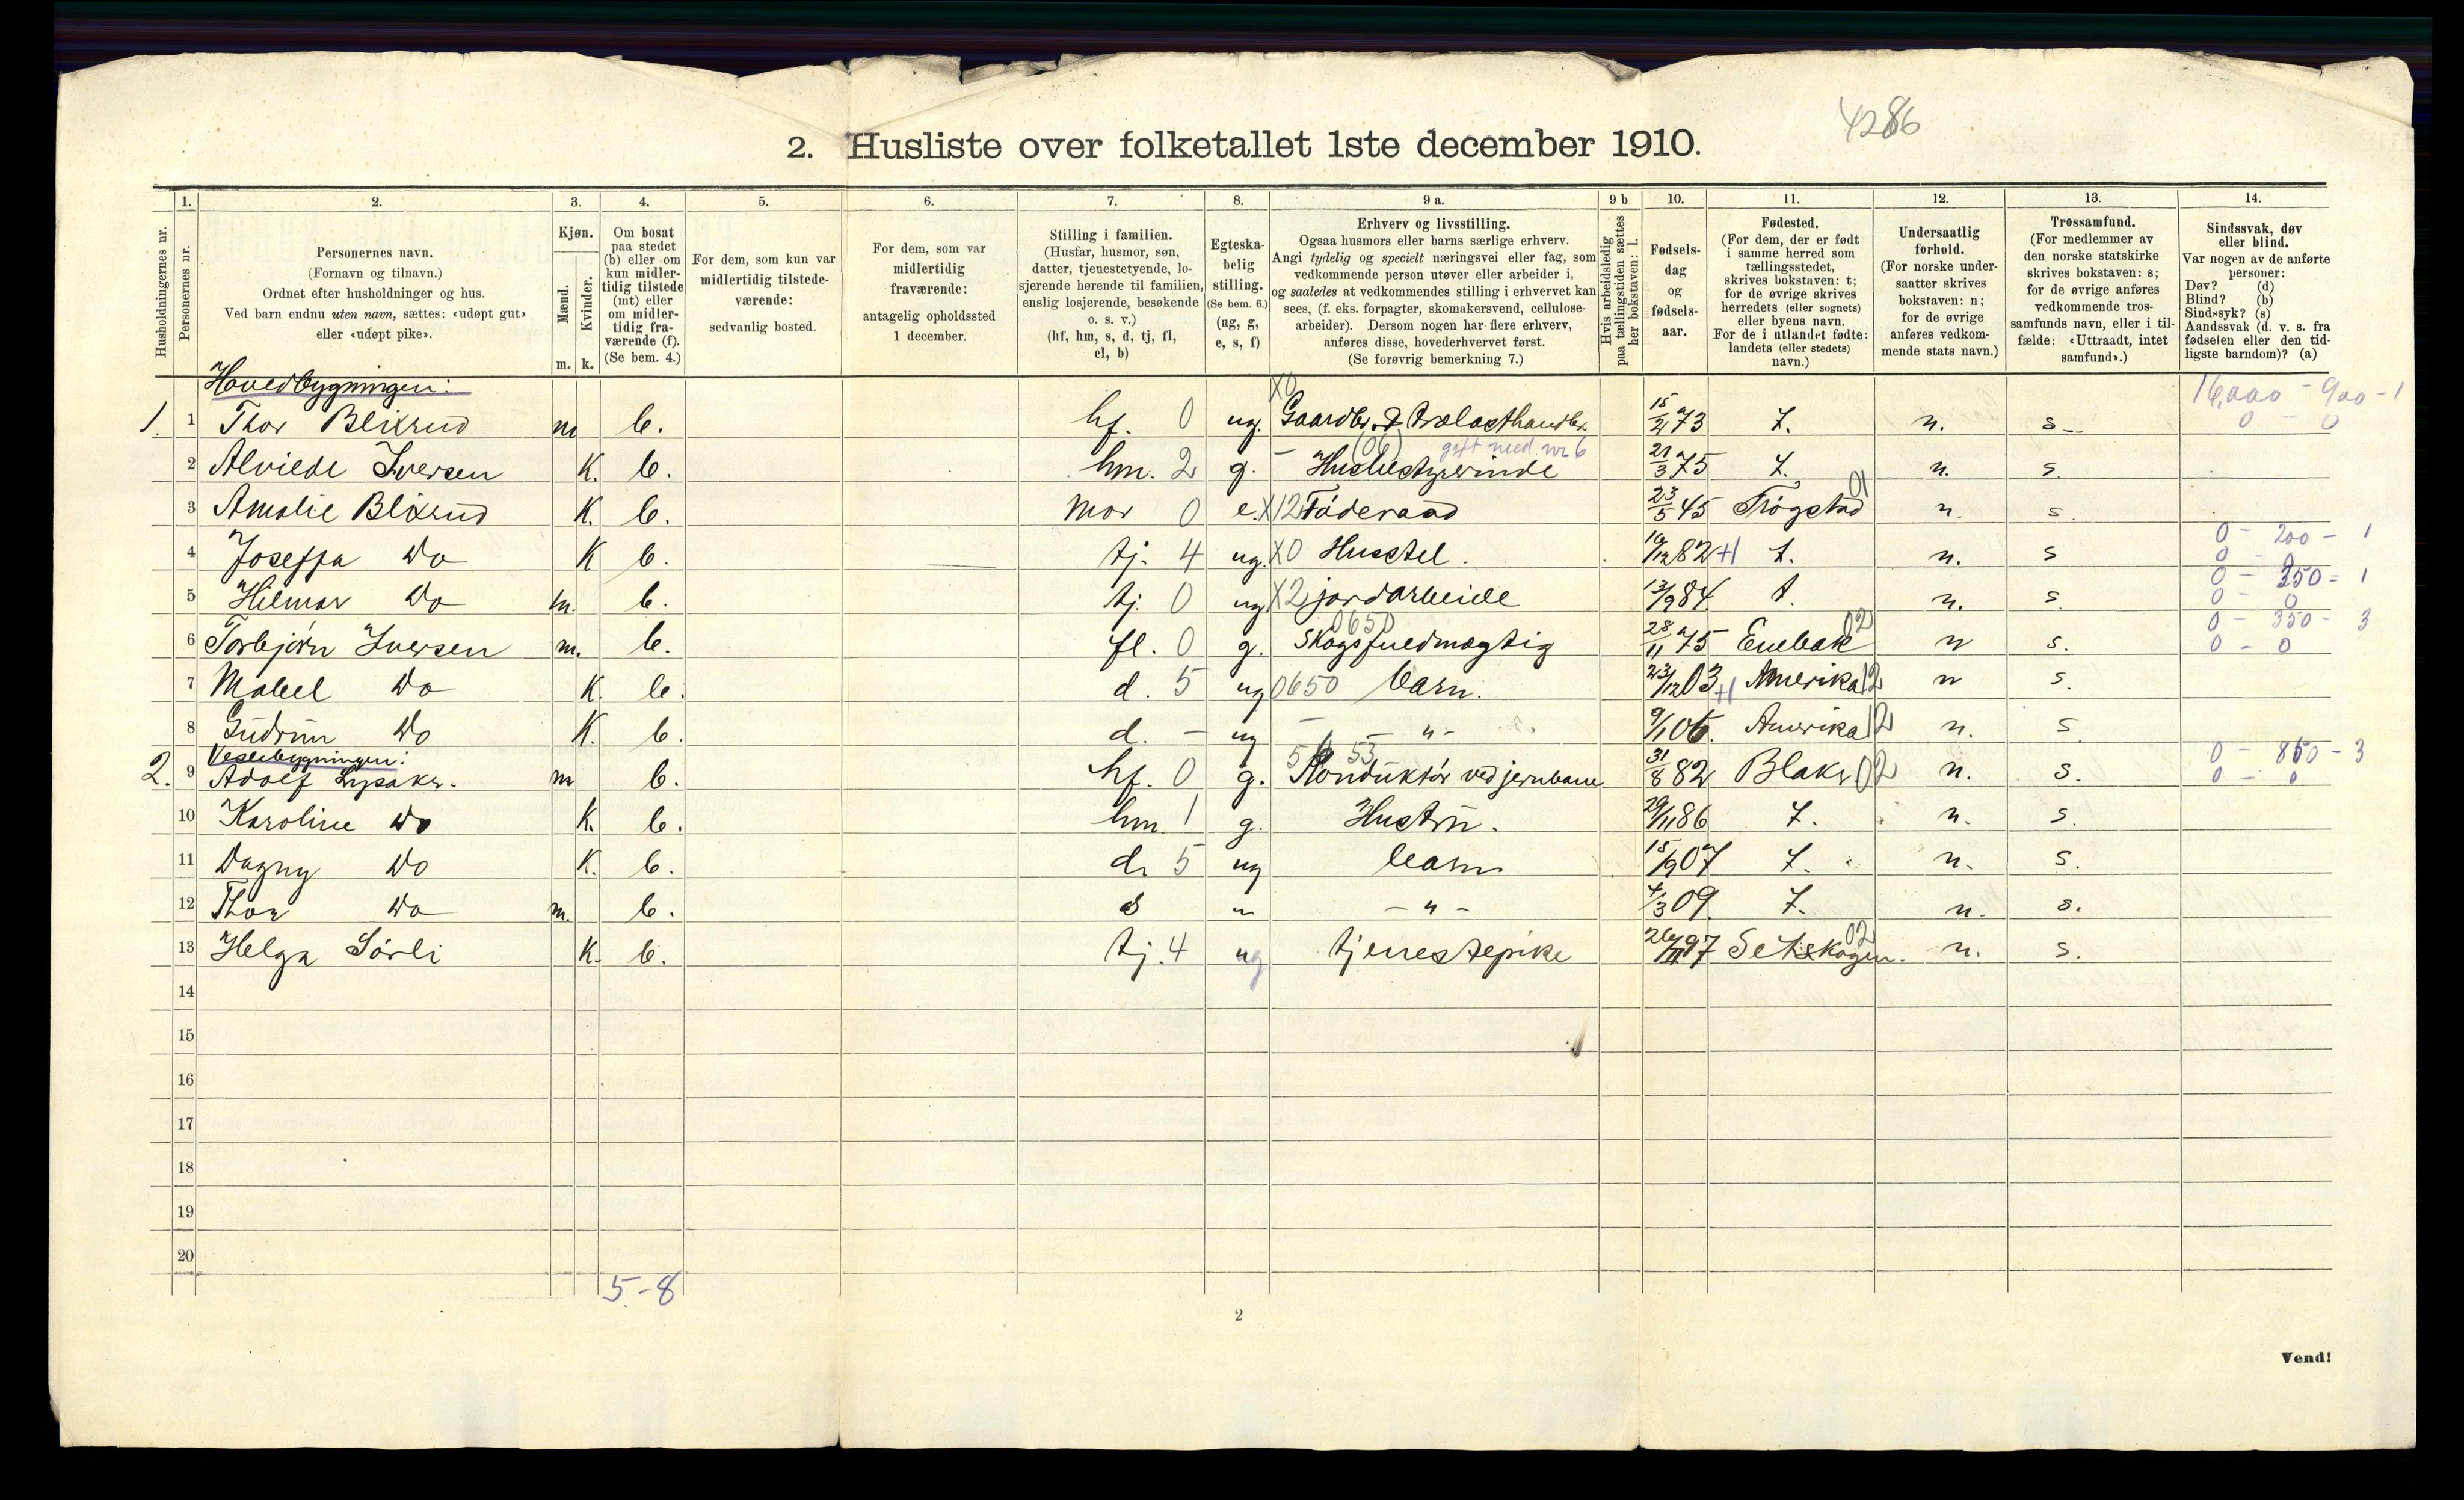 4286
2. Husliste over folketallet 1ste december 1910.
Husholdningernes nr.
1. Personernes nr.
2. Personernes navn.
(Fornavn og tilnavn.)
Ordnet efter husholdninger og hus.
Ved barn endnu uten navn, sættes: «udøpt gut»
eller «udøpt pike».
3. Kjøn.
Mænd. m.
Kvinder. k.
4. Om bosat
paa stedet
(b) eller om
kun midler-
tidig tilstede
(mt) eller
om midler-
tidig fra-
værende (f).
(Se bem. 4.)
5. For dem, som kun var
midlertidig tilstede-
værende:
sedvanlig bosted.
6. For dem, som var
midlertidig
fraværende:
antagelig opholdssted
1 december.
7. Stilling i familien.
(Husfar, husmor, søn,
datter, tjenestetyende, lo-
sjerende hørende til familien,
enslig losjerende, besøkende
o. s. v.)
(hf, hm, s, d, tj, fl,
el, b)
8. Egteska-
belig
stilling.
(Se bem. 6.)
(ug, g,
e, s, f)
9 a. Erhverv og livsstilling.
Ogsaa husmors eller barns særlige erhverv.
Angi tydelig og specielt næringsvei eller fag, som
vedkommende person utøver eller arbeider i,
og saaledes at vedkommendes stilling i erhvervet kan
sees, (f. eks. forpagter, skomakersvend, cellulose-
arbeider). Dersom nogen har flere erhverv,
anføres disse, hovederhvervet først.
(Se forøvrig bemerkning 7.)
9 b Hvis arbeidsledig
paa tællingstiden sættes
her bokstaven: l.
10. Fødsels-
dag
og
fødsels-
aar.
11. Fødested.
(For dem, der er født
i samme herred som
tællingsstedet,
skrives bokstaven: t;
for de øvrige skrives
herredets (eller sognets)
eller byens navn.
For de i utlandet fødte:
landets (eller stedets)
navn.)
12. Undersaatlig
forhold.
(For norske under-
saatter skrives
bokstaven: n;
for de øvrige
anføres vedkom-
mende stats navn.)
13. Trossamfund.
(For medlemmer av
den norske statskirke
skrives bokstaven: s;
for de øvrige anføres
vedkommende tros-
samfunds navn, eller i til-
fælde: «Uttraadt, intet
samfund».)
14. Sindssvak, døv
eller blind.
Var nogen av de anførte
personer:
Døv? (d)
Blind? (b)
Sindssyk? (s)
Aandssvak (d. v. s. fra
fødselen eller den tid-
ligste barndom)? (a)
Hovedbygningen:
X0 16,000 - 900 - 1
1. 1 Thor Blixrud m b. hf. 0 ug. Gaardbr. & Trælasthandler 15/2 73 t. n. s 0 - 0
(06) gift med nr 6
2 Alviede Iversen K. b. hm. 2 g. - Husbestyrerinde 21/3 75 t. n. s.
3 Amalie Blixrud K. b. Mor 0 e. X12 Føderaad 23/5 45 Trøgstad 01 n. s.
0 - 200 - 1
4 Joseffa Do K b. tj. 4 ug. X0 Husstel. 10/12 82 +1 t. n. s 0 - 0
0 - 350 - 1
5 Hilmar Do m. b. tj. 0 ug X2 jordarbeide 13/9 84 t. n. s. 0 - 0
0650 0 - 350 - 3
6 Torbjørn Iversen m. b. fl. 0 g. Skogsfuldmægtig 28/11 75 Enebak 02 n s. 0 - 0
7 Mabel Do K. b. d. 5 ug 0650 barn. 23/12 03 +1 Amerika 12 n s.
8 Gudrun Do K. b. d. - ug - - " - 9/1 06. Amerika 12 n. s
Veslebygningen:
5 53 0 - 850 - 3
2. 9 Adolf Lysaker. m b. hf. 0 g. Konduktør ved jernbane 31/8 82 Blaker 02 n. s. 0 - 0
10 Karoline Do K. b. hm. 1 g. Hustru. 29/11 86 t. n. s.
11 Dagny Do K. b. d. 5 ug barn 15/9 07 t. n. s.
12 Thor Do m. b. s " - " - 4/3 09. t. n. s.
13 Helga Sørli K. b. tj. 4 ug tjenestepike 26/11 97 Setskogen. 02 n. s.
14
15
16
17
18
19
20
5 - 8
2
Vend!